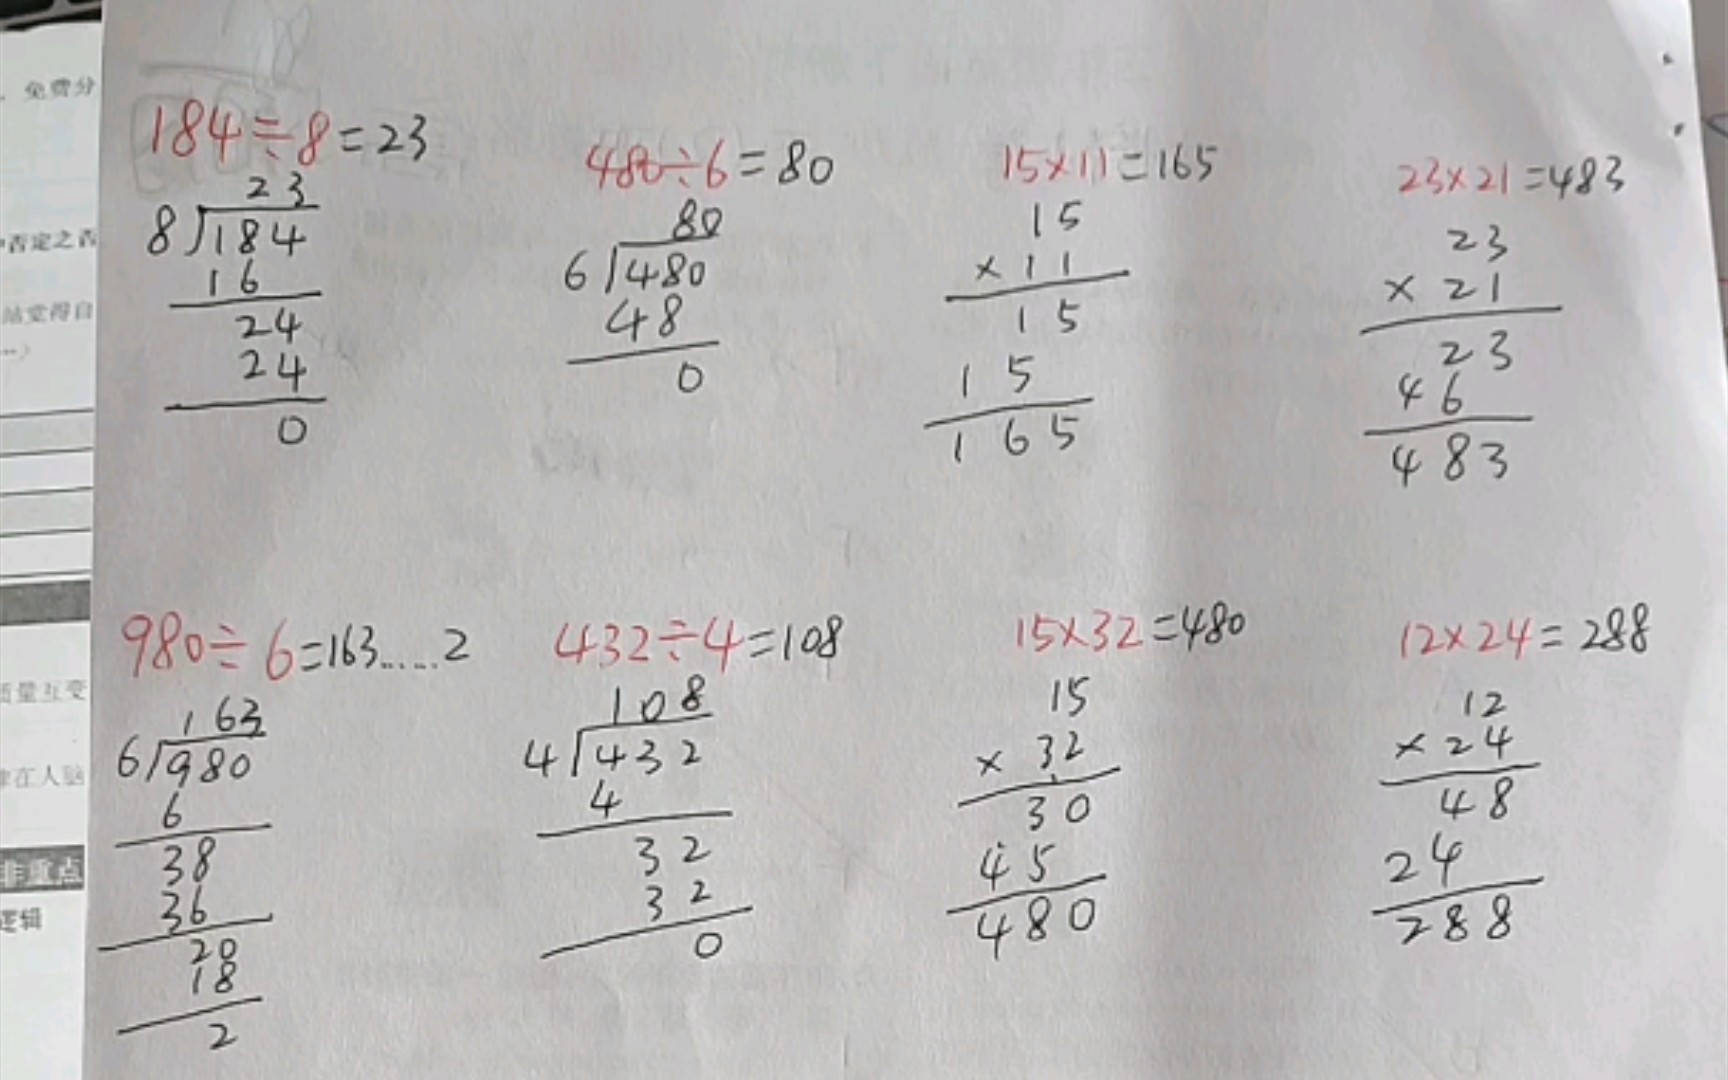 免费分
否定之否
站觉得自
质量互变
在人脑
非重点
逻辑
184÷8=23
23
8 184
16
24
24
0
480÷6=80
80
6 480
48
0
15×11=165
15
×11
15
15
165
23×21=483
23
×21
23
46
483
980÷6=163……2
163
6 980
6
38
36
20
18
2
432÷4=108
108
4 432
4
32
32
0
15×32=480
15
×32
30
45
480
12×24=288
12
×24
48
24
288